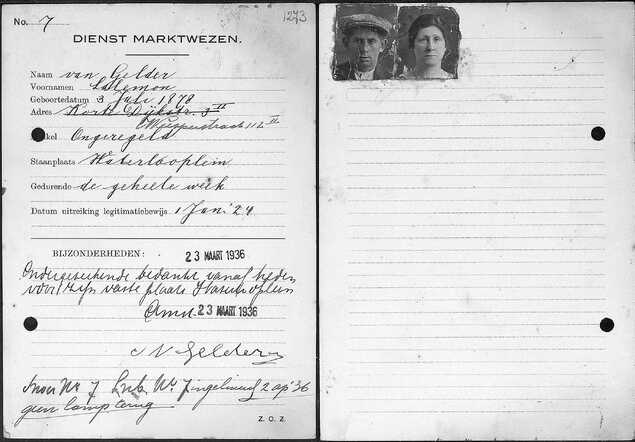 No. 7
1273
DIENST MARKTWEZEN.
Naam van Gelder
Voornamen Salemon
Geboortedatum 3 Juli 1878
Adres Korte Dijkstr. 3 II
Wuijperstraat 112 II
kel Ongeregeld
Staanplaats Waterlooplein
Gedurende de geheele week
Datum uitreiking legitimatiebewijs 1 Jan. '24
BIJZONDERHEDEN: 23 MAART 1936
Ondergeteekende bedankt vanaf heden
voor zijn vaste plaats Waterlooplein
Amst. 23 MAART 1936
v Gelder
No 7 No 7 ingeleverd 2 ap '36
geen lamp terug
Z. O. Z.